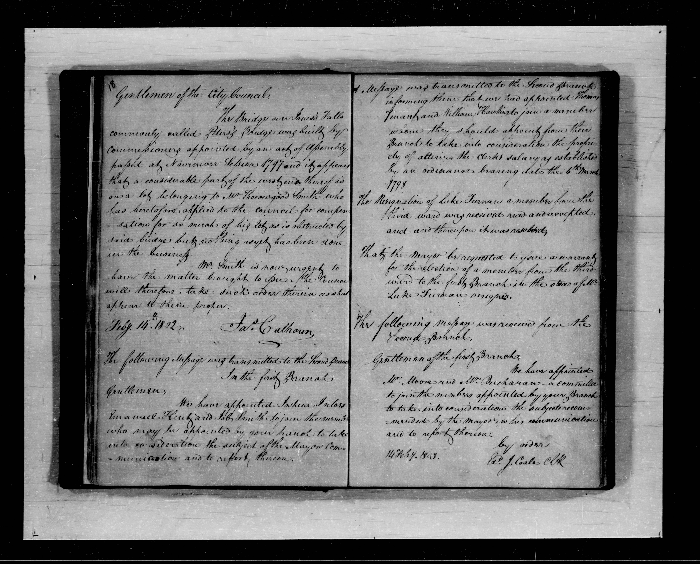 18
Gentlemen of the City Council,
The Bridge over Jones's Falls
commonly called Bridge was built by
Commissioners appointed by an act of Assembly
passed at November Session 1797 and it appears
that a considerable part of the west end thereof is
over a lot belonging to Mr Thorowgood Smith who
has heretofore applied to the council for compen
sation for so much of his lot as is obstructed by
said bridge but nothing as yet has been done
in the business
Mr Smith is now urgent to
have the matter brought to issue. The Council
will therefore take such order therein as shall
appear to them proper.
Feby 14th 1802. Jas. Calhoun,
The following Message was transmitted to the Second Branch
In the first Branch
Gentlemen,
We have appointed
Emanuel Kent and Job Smith to join the members
who may be appointed in your branch to take
into consideration the subject of the Mayors Com
munication and to report thereon.
A Message was transmitted to the Second Branch
informing them that we had appointed Thomas
and William Hawkins to join a member
whom they should appoint from their
Branch to take into consideration the proprie
ty of altering the Clerks salary as established
by an ordinance bearing date the 6th March
1798
The Resignation of Luke Tiernan a member from the
third ward was received read and accepted
and thereupon it was resolved,
That the Mayor be requested to issue a warrant
for the election of a member from the third
ward to the first Branch in the room of Mr
Luke Tiernan resigned.
The following message was received from the
Second Branch.
Gentlemen of the first Branch,
We have appointed
Mr. Moore and Mr. Buchanan a committee
to join the members appointed by your Branch
to take into consideration the subject recom
mended by the Mayor in his communication
and to report thereon.
by order
14 Feby. 1803. J. Coale Clk